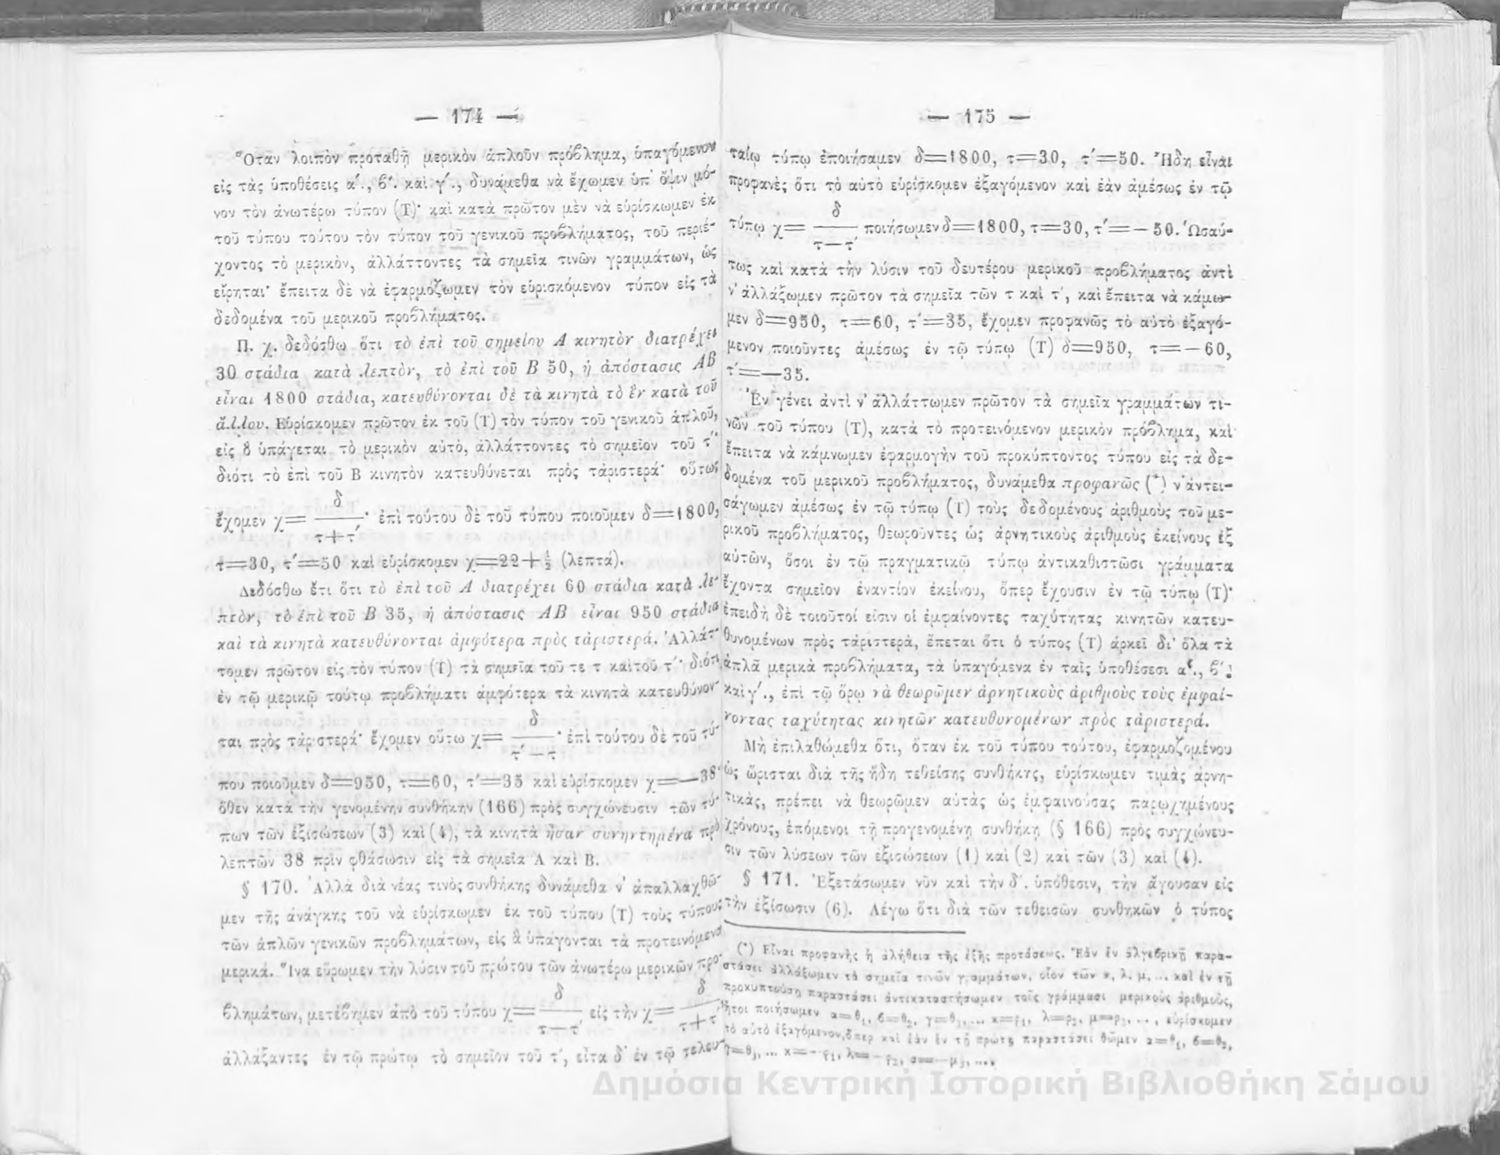 — 174 —
Ὅταν λοιπὸν προταθῇ μερικὸν ἁπλοῦν πρόβλημα, ὑπαγόμενον
εἰς τὰς ὑποθέσεις α΄., β΄. καὶ γ΄., δυνάμεθα νὰ ἔχωμεν ὑπ᾿ ὄψιν μό-
νον τὸν ἀνωτέρω τύπον (Τ)· καὶ κατὰ πρῶτον μὲν νὰ εὑρίσκωμεν ἐκ
τοῦ τύπου τούτου τὸν τύπον τοῦ γενικοῦ προβλήματος, τοῦ περιέ-
χοντος τὸ μερικὸν, ἀλλάττοντες τὰ σημεῖα τινῶν γραμμάτων, ὡς
εἴρηται· ἔπειτα δὲ νὰ ἐφαρμόζωμεν τὸν εὑρισκόμενον τύπον εἰς τὰ
δεδομένα τοῦ μερικοῦ προβλήματος.
Π. χ. δεδόσθω ὅτι τὸ ἐπὶ τοῦ σημείου Α κινητὸν διατρέχει
30 στάδια κατὰ λεπτὸν, τὸ ἐπὶ τοῦ Β 50, ἡ ἀπόστασις ΑΒ
εἶναι 1800 στάδια, κατευθύνονται δὲ τὰ κινητὰ τὸ ἓν κατὰ τοῦ
ἄλλου. Εὑρίσκομεν πρῶτον ἐκ τοῦ (Τ) τὸν τύπον τοῦ γενικοῦ ἁπλοῦ,
εἰς ὃ ὑπάγεται τὸ μερικὸν αὐτὸ, ἀλλάττοντες τὸ σημεῖον τοῦ τ΄
διότι τὸ ἐπὶ τοῦ Β κινητὸν κατευθύνεται πρὸς τἀριστερά· οὕτως
ἔχομεν χ= δ/(τ+τ΄)· ἐπὶ τούτου δὲ τοῦ τύπου ποιοῦμεν δ=1800,
τ=30, τ΄=50 καὶ εὑρίσκομεν χ=22+½ (λεπτά).
Δεδόσθω ἔτι ὅτι τὸ ἐπὶ τοῦ Α διατρέχει 60 στάδια κατὰ λε-
πτὸν, τὸ ἐπὶ τοῦ Β 35, ἡ ἀπόστασις ΑΒ εἶναι 950 στάδια
καὶ τὰ κινητὰ κατευθύνονται ἀμφότερα πρὸς τἀριστερά. Ἀλλάτ-
τομεν πρῶτον εἰς τὸν τύπον (Τ) τὰ σημεῖα τοῦ τε τ καὶ τοῦ τ΄· διότι
ἐν τῷ μερικῷ τούτῳ προβλήματι ἀμφότερα τὰ κινητὰ κατευθύνον-
ται πρὸς τἀριστερά· ἔχομεν οὕτω χ= δ/(τ΄—τ)· ἐπὶ τούτου δὲ τοῦ τύ-
που ποιοῦμεν δ=950, τ=60, τ΄=35 καὶ εὑρίσκομεν χ=—38·
ὅθεν κατὰ τὴν γενομένην συνθήκην (166) πρὸς συγχώνευσιν τῶν τύ-
πων τῶν ἐξισώσεων (3) καὶ (4), τὰ κινητὰ ἦσαν συνηντημένα πρὸ
λεπτῶν 38 πρὶν φθάσωσιν εἰς τὰ σημεῖα Α καὶ Β.
§ 170. Ἀλλὰ διὰ νέας τινὸς συνθήκης δυνάμεθα ν᾿ ἀπαλλαχθῶ-
μεν τῆς ἀνάγκης τοῦ νὰ εὑρίσκωμεν ἐκ τοῦ τύπου (Τ) τοὺς τύπους
τῶν ἁπλῶν γενικῶν προβλημάτων, εἰς ἃ ὑπάγονται τὰ προτεινόμενα
μερικά. Ἵνα εὕρωμεν τὴν λύσιν τοῦ πρώτου τῶν ἀνωτέρω μερικῶν προ-
βλημάτων, μετέβημεν ἀπὸ τοῦ τύπου χ= δ/(τ—τ΄) εἰς τὴν χ= δ/(τ+τ΄),
ἀλλάξαντες ἐν τῷ πρώτῳ τὸ σημεῖον τοῦ τ΄, εἶτα δ᾿ ἐν τῷ τελευ-
— 175 —
ταίῳ τύπῳ ἐποιήσαμεν δ=1800, τ=30, τ΄=50. Ἤδη εἶναι
προφανὲς ὅτι τὸ αὐτὸ εὑρίσκομεν ἐξαγόμενον καὶ ἐὰν ἀμέσως ἐν τῷ
τύπῳ χ= δ/(τ—τ΄) ποιήσωμεν δ=1800, τ=30, τ΄=—50. Ὡσαύ-
τως καὶ κατὰ τὴν λύσιν τοῦ δευτέρου μερικοῦ προβλήματος ἀντὶ
ν᾿ ἀλλάξωμεν πρῶτον τὰ σημεῖα τῶν τ καὶ τ΄, καὶ ἔπειτα νὰ κάμω-
μεν δ=950, τ=60, τ΄=35, ἔχομεν προφανῶς τὸ αὐτὸ ἐξαγό-
μενον ποιοῦντες ἀμέσως ἐν τῷ τύπῳ (Τ) δ=950, τ=—60,
τ΄=—35.
Ἐν γένει ἀντὶ ν᾿ ἀλλάττωμεν πρῶτον τὰ σημεῖα γραμμάτων τι-
νῶν τοῦ τύπου (Τ), κατὰ τὸ προτεινόμενον μερικὸν πρόβλημα, καὶ
ἔπειτα νὰ κάμνωμεν ἐφαρμογὴν τοῦ προκύπτοντος τύπου εἰς τὰ δε-
δομένα τοῦ μερικοῦ προβλήματος, δυνάμεθα προφανῶς (*) ν᾿ ἀντει-
σάγωμεν ἀμέσως ἐν τῷ τύπῳ (Τ) τοὺς δεδομένους ἀριθμοὺς τοῦ με-
ρικοῦ προβλήματος, θεωροῦντες ὡς ἀρνητικοὺς ἀριθμοὺς ἐκείνους ἐξ
αὐτῶν, ὅσοι ἐν τῷ πραγματικῷ τύπῳ ἀντικαθιστῶσι γράμματα
ἔχοντα σημεῖον ἐναντίον ἐκείνου, ὅπερ ἔχουσιν ἐν τῷ τύπῳ (Τ)·
ἐπειδὴ δὲ τοιοῦτοί εἰσιν οἱ ἐμφαίνοντες ταχύτητας κινητῶν κατευ-
θυνομένων πρὸς τἀριστερὰ, ἕπεται ὅτι ὁ τύπος (Τ) ἀρκεῖ δι᾿ ὅλα τὰ
ἁπλᾶ μερικὰ προβλήματα, τὰ ὑπαγόμενα ἐν ταῖς ὑποθέσεσι α΄., β΄.
καὶ γ΄., ἐπὶ τῷ ὅρῳ νὰ θεωρῶμεν ἀρνητικοὺς ἀριθμοὺς τοὺς ἐμφαί-
νοντας ταχύτητας κινητῶν κατευθυνομένων πρὸς τἀριστερά.
Μὴ ἐπιλαθώμεθα ὅτι, ὅταν ἐκ τοῦ τύπου τούτου, ἐφαρμοζομένου
ὡς ὥρισται διὰ τῆς ἤδη τεθείσης συνθήκης, εὑρίσκωμεν τιμὰς ἀρνη-
τικὰς, πρέπει νὰ θεωρῶμεν αὐτὰς ὡς ἐμφαινούσας παρῳχημένους
χρόνους, ἑπόμενοι τῇ προγενομένῃ συνθήκῃ (§ 166) πρὸς συγχώνευ-
σιν τῶν λύσεων τῶν ἐξισώσεων (1) καὶ (2) καὶ τῶν (3) καὶ (4).
§ 171. Ἐξετάσωμεν νῦν καὶ τὴν δ΄. ὑπόθεσιν, τὴν ἄγουσαν εἰς
τὴν ἐξίσωσιν (6). Λέγω ὅτι διὰ τῶν τεθεισῶν συνθηκῶν ὁ τύπος
(*) Εἶναι προφανὴς ἡ ἀλήθεια τῆς ἑξῆς προτάσεως. Ἐὰν ἐν ἀλγεβρικῇ παρα-
στάσει ἀλλάξωμεν τὰ σημεῖα τινῶν γραμμάτων, οἷον τῶν κ, λ, μ, ... καὶ ἐν τῇ
προκυπτούσῃ παραστάσει ἀντικαταστήσωμεν τοῖς γράμμασι μερικοὺς ἀριθμοὺς,
ἤτοι ποιήσωμεν α=θ₁, β=θ₂, γ=θ₃,... κ=ρ₁, λ=ρ₂, μ=ρ₃, ..., εὑρίσκομεν
τὸ αὐτὸ ἐξαγόμενον, ὅπερ καὶ ἐὰν ἐν τῇ πρώτῃ παραστάσει θῶμεν α=θ₁, β=θ₂,
γ=θ₃, ... κ=—ρ₁, λ=—ρ₂,
Δημόσια Κεντρική Ιστορική Βιβλιοθήκη Σάμου